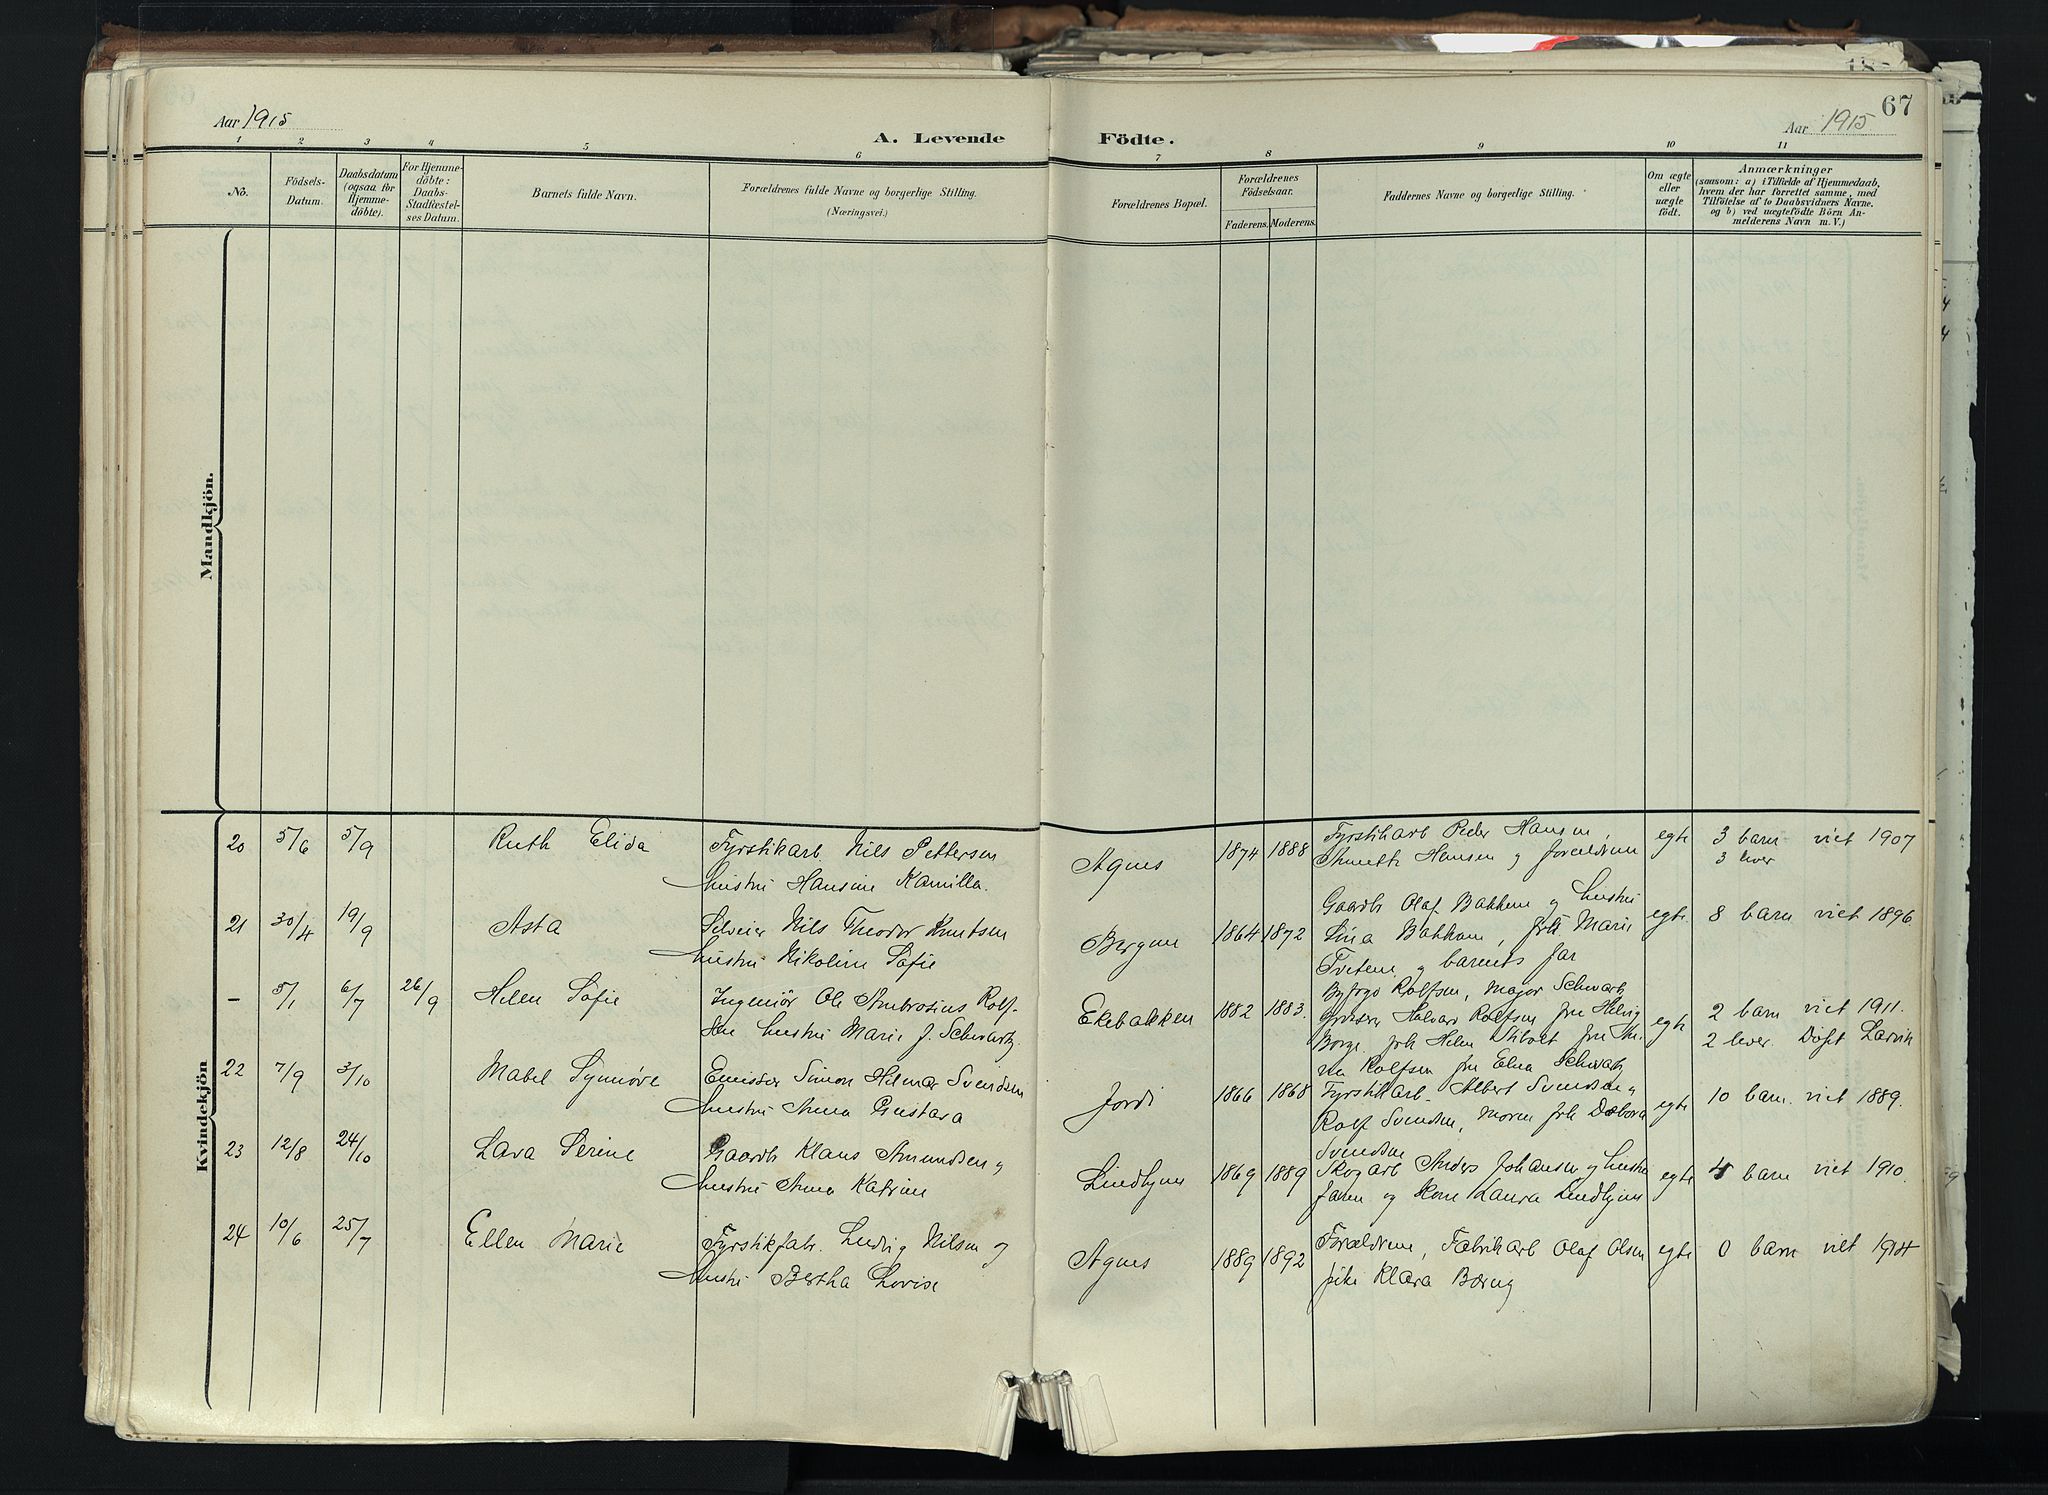 67
Aar 1915
A. Levende
Födte.
Aar 1915
1 2 3 4 5 6 7 8 9 10 11
No.
Födsels-
Datum.
Daabsdatum
(ogsaa for
Hjemme-
döbte).
For Hjemme-
döbte:
Daabs-
Stadfæstel-
ses Datum.
Barnets fulde Navn.
Forældrenes fulde Navne og borgerlige Stilling.
(Næringsvei.)
Forældrenes Bopæl.
Forældrenes
Födselsaar.
Faderens. Moderens.
Faddernes Navne og borgerlige Stilling.
Om ægte
eller
uægte
födt.
Anmærkninger
(saasom: a) i Tilfælde af Hjemmedaab,
hvem der har forrettet samme, med
Tilföielse af to Daabsvidners Navne.
og b) ved uægtefödte Börn An-
melderens Navn m. V.)
Mandkjön.
Kvindekjön
20 5/6 5/9 Ruth Elida
Fyrstikarb. Nils Pettersen
hustru Hansine Kamilla.
Agnes 1874 1888
Fyrstikarb Peder Hansen,
Hansen og forældrene
egte
3 barn viet 1907
3 lever
21 30/4 19/9 Asta
Selveier Nils Theodor Knutsen
hustru Nikoline Sofie
Bergene 1864 1872
Gaardb Olaf Bakken og hustru
Lina Bakken, frk Marie
Tvetene og barnets far
egte
8 barn viet 1896.
- 5/1 6/7 26/9 Helen Sofie
Ingeniør Ole Ambrosius Rolf-
sen hustru Marie J. Schwartz.
Ekebakken 1882 1883.
Rolfsen, Major Schwartz
Halvor Rolfsen fru Helvig
Borge frk Helen fru
Rolfsen fru Elna Schwartz
egte
2 barn viet 1911.
2 lever. Døft Larvik
22 7/9 3/10 Mabel Synnøve
Emissær Simon Helmer Svendsen
hustru Anna Gustava
Jordi 1866 1868
Fyrstikarb. Albert Svendsen,
Rolf Svendsen, Moren frk Debora
Svendsen
egte
10 barn. viet 1889.
23 12/8 24/10 Lava Serine
Gaardb Klaus Amundsen og
hustru Anna Katrine
Lindhjem 1869 1889
Skogarb Anders Johansen og hustru
faren og Laura Lindhjem
egte
4 barn viet 1910.
24 10/6 25/7 Ellen Marie
Fyrstikfabr. Ludvig Nilsen og
hustru Bertha Lovise
Agnes 1889 1892
Forældrene, Fabrikarb Olaf Olsen
pike Klara Bærug
egte
0 barn viet 1914